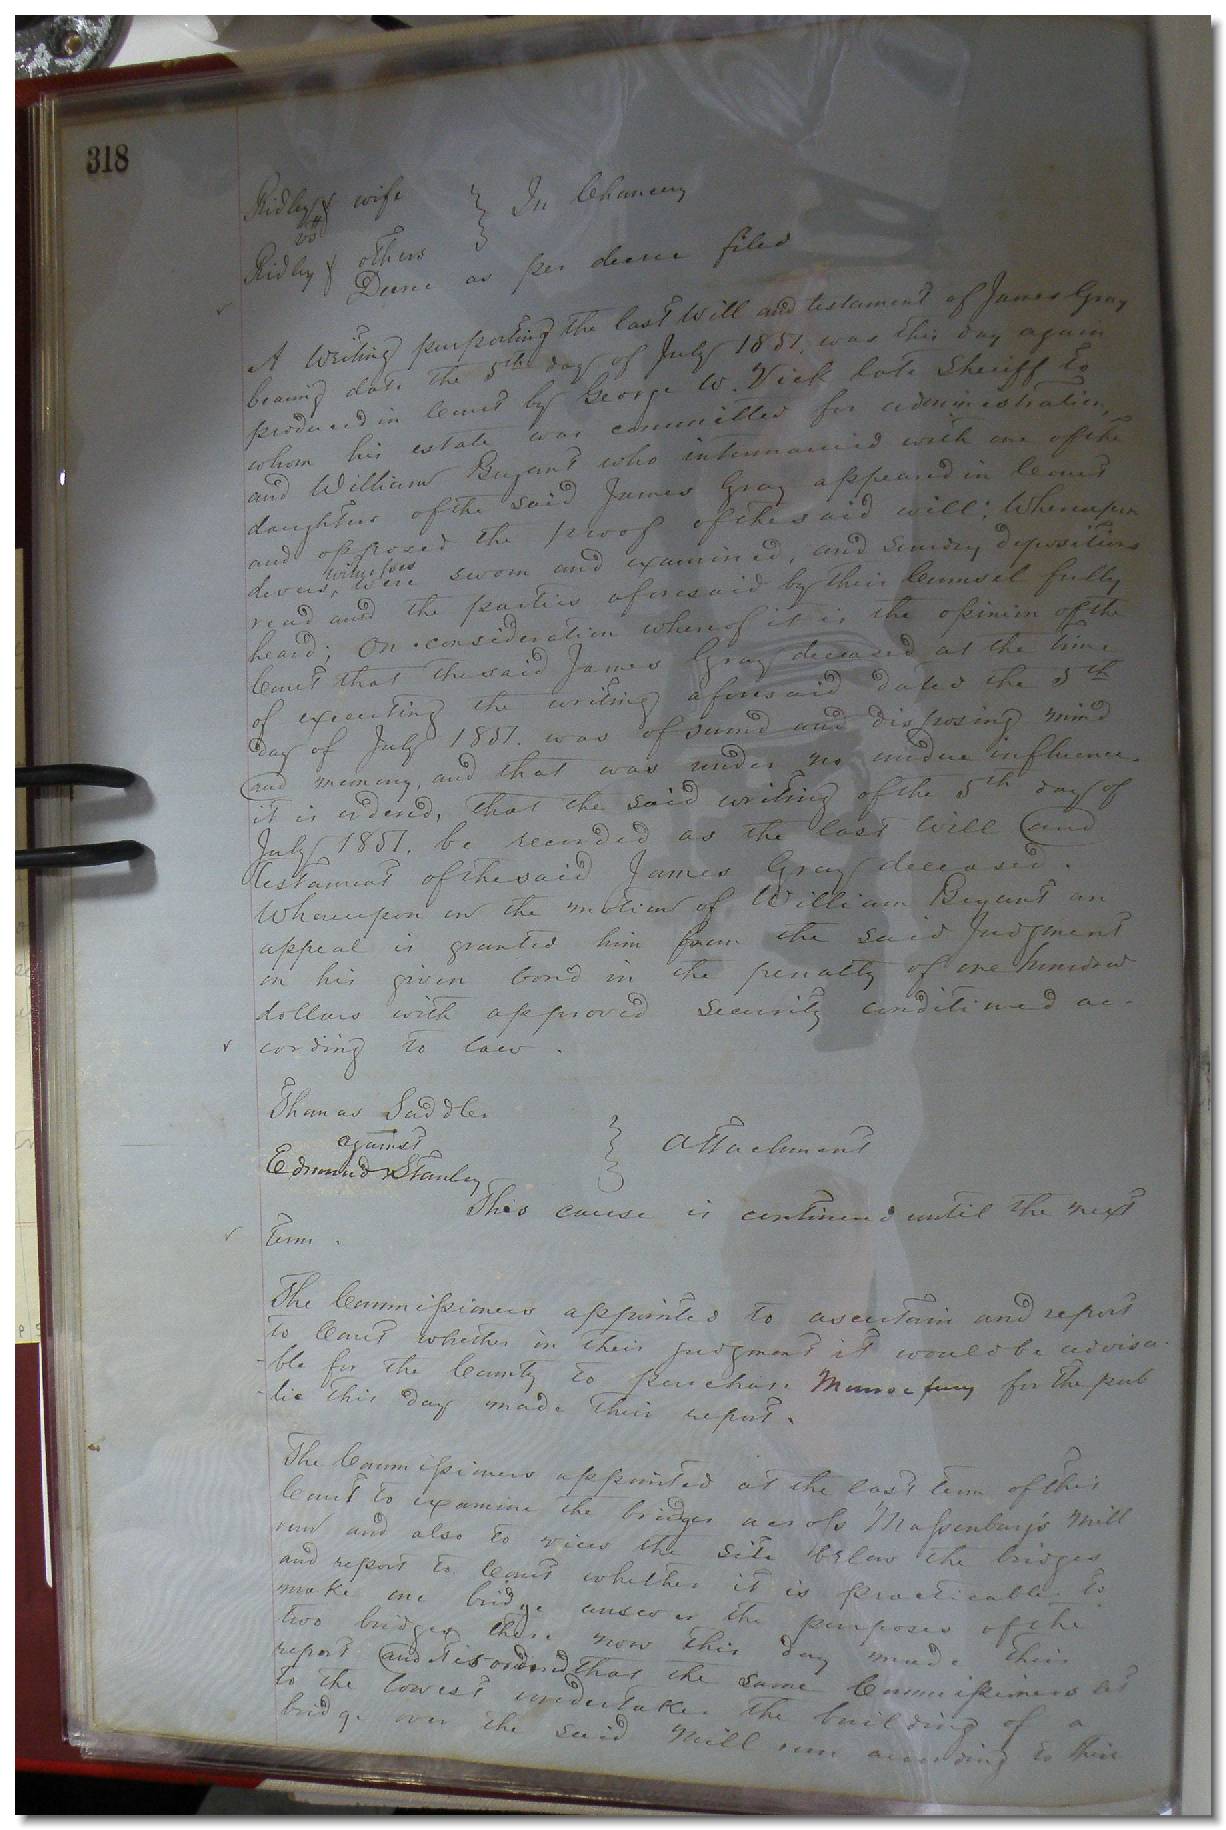 318
Ridley & wife } In Chancery
vs
Ridley & others
Decree as per decree filed
A Writing purporting the last Will and testament of James Gray
bearing date the 5th day of July 1851. was this day again
produced in Court by George W. Vick late Sheriff to
whom his estate was committed for administration,
and William Bryant who intermarried with one of the
daughters of the said James Gray appeared in Court
and opposed the proof of the said will; Whereupon
witnesses
divers, were sworn and examined, and sundry depositions
read and the parties aforesaid by their Counsel fully
heard; On consideration whereof it is the opinion of the
Court that the said James Gray deceased at the time
of executing the writing aforesaid dated the 5th
day of July 1851. was of sound and disposing mind
and memory, and that was under no undue influence.
it is ordered, that the said writing of the 5th day of
July 1851. be recorded as the last Will and
testament of the said James Gray deceased.
Whereupon on the motion of William Bryant an
appeal is granted him from the said Judgment
on his given bond in the penalty of one hundred
dollars with approved security conditioned ac-
cording to law.
Thomas Saddler
against } Attachment
Edmund Stanley
This cause is continued until the next
term.
The Commissioners appointed to ascertain and report
to Court whether in their judgment it would be advisa-
-ble for the County to purchase Monroe ferry for the pub
-lic this day made their report.
The Commissioners appointed at the last term of this
Court to examine the bridges across Massenburg's Mill
run and also to view the site below the bridges
and report to Court whether it is practicable to
make one bridge answer the purposes of the
two bridges there now this day made their
report and it is ordered that the same Commissioners let
to the lowest undertaker the building of a
bridge over the said Mill run according to their